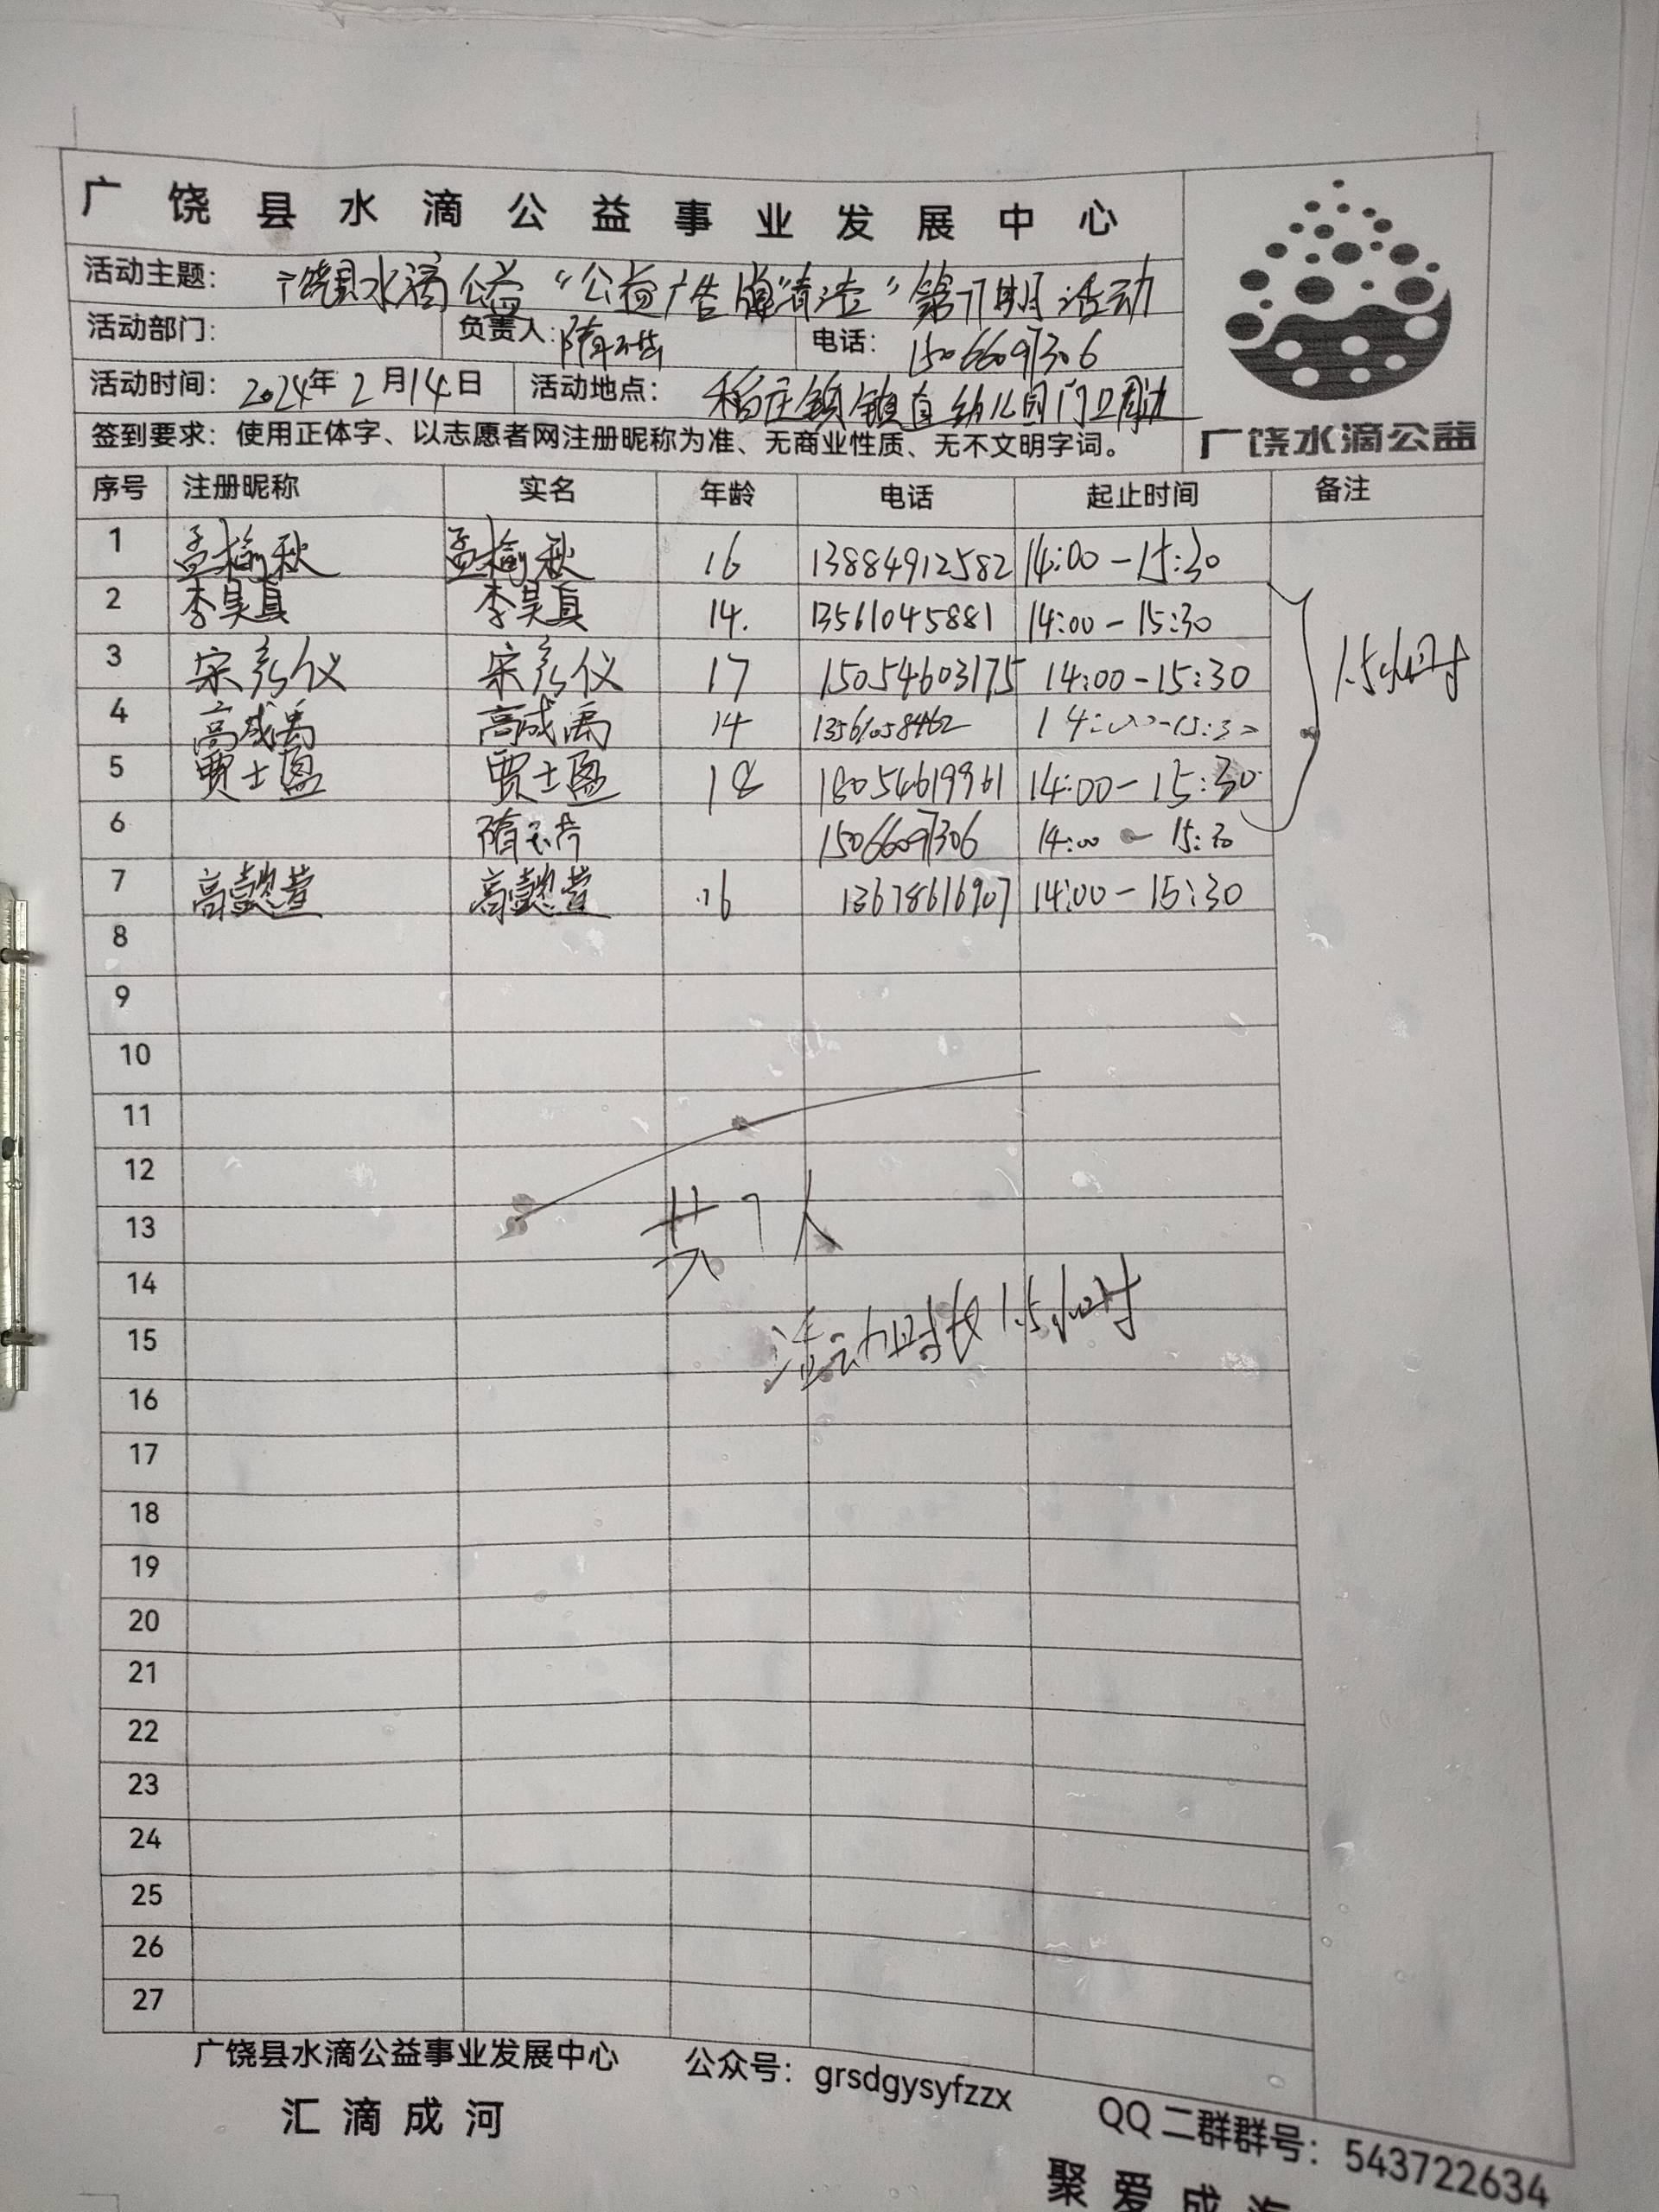 广饶县水滴公益事业发展中心
活动主题： 广饶县水滴公益“公益广告牌清洁”第 期活动
活动部门： 负责人： 隋 电话： 15066097306
活动时间： 2024年2月14日 活动地点： 稻庄镇镇直幼儿园门口周边
签到要求：使用正体字、以志愿者网注册昵称为准、无商业性质、无不文明字词。
广饶水滴公益
序号 注册昵称 实名 年龄 电话 起止时间 备注
1 孟榆秋 孟榆秋 16 13884912582 14:00-15:30
2 李昊真 李昊真 14. 13561045881 14:00-15:30
1.5小时
3 宋彦仪 宋彦仪 17 15054603175 14:00-15:30
4 高成禹 高成禹 14 13561058462 14:00-15:30
5 贾士盈 贾士盈 18 18054619961 14:00-15:30
6 隋 15066097306 14:00-15:30
7 高懿萱 高懿萱 16 13678616907 14:00-15:30
8
9
10
11
12
13 共7人
14
15 活动时长1.5小时
16
17
18
19
20
21
22
23
24
25
26
27
广饶县水滴公益事业发展中心 公众号：grsdgysyfzzx QQ二群群号：543722634
汇滴成河 聚爱成海